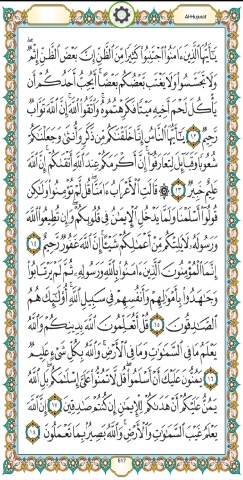 Al-Hujurat
يَـٰٓأَيُّهَا ٱلَّذِينَ ءَامَنُوا۟ ٱجْتَنِبُوا۟ كَثِيرًا مِّنَ ٱلظَّنِّ إِنَّ بَعْضَ ٱلظَّنِّ إِثْمٌ
وَلَا تَجَسَّسُوا۟ وَلَا يَغْتَب بَّعْضُكُم بَعْضًا أَيُحِبُّ أَحَدُكُمْ أَن
يَأْكُلَ لَحْمَ أَخِيهِ مَيْتًا فَكَرِهْتُمُوهُ وَٱتَّقُوا۟ ٱللَّهَ إِنَّ ٱللَّهَ تَوَّابٌ
رَّحِيمٌ ١٢ يَـٰٓأَيُّهَا ٱلنَّاسُ إِنَّا خَلَقْنَـٰكُم مِّن ذَكَرٍ وَأُنثَىٰ وَجَعَلْنَـٰكُمْ
شُعُوبًا وَقَبَآئِلَ لِتَعَارَفُوٓا۟ إِنَّ أَكْرَمَكُمْ عِندَ ٱللَّهِ أَتْقَىٰكُمْ إِنَّ ٱللَّهَ
عَلِيمٌ خَبِيرٌ ١٣ ۞ قَالَتِ ٱلْأَعْرَابُ ءَامَنَّا قُل لَّمْ تُؤْمِنُوا۟ وَلَـٰكِن
قُولُوٓا۟ أَسْلَمْنَا وَلَمَّا يَدْخُلِ ٱلْإِيمَـٰنُ فِى قُلُوبِكُمْ وَإِن تُطِيعُوا۟ ٱللَّهَ
وَرَسُولَهُۥ لَا يَلِتْكُم مِّنْ أَعْمَـٰلِكُمْ شَيْـًٔا إِنَّ ٱللَّهَ غَفُورٌ رَّحِيمٌ ١٤
إِنَّمَا ٱلْمُؤْمِنُونَ ٱلَّذِينَ ءَامَنُوا۟ بِٱللَّهِ وَرَسُولِهِۦ ثُمَّ لَمْ يَرْتَابُوا۟
وَجَـٰهَدُوا۟ بِأَمْوَٰلِهِمْ وَأَنفُسِهِمْ فِى سَبِيلِ ٱللَّهِ أُو۟لَـٰٓئِكَ هُمُ
ٱلصَّـٰدِقُونَ ١٥ قُلْ أَتُعَلِّمُونَ ٱللَّهَ بِدِينِكُمْ وَٱللَّهُ
يَعْلَمُ مَا فِى ٱلسَّمَـٰوَٰتِ وَمَا فِى ٱلْأَرْضِ وَٱللَّهُ بِكُلِّ شَىْءٍ عَلِيمٌ
١٦ يَمُنُّونَ عَلَيْكَ أَنْ أَسْلَمُوا۟ قُل لَّا تَمُنُّوا۟ عَلَىَّ إِسْلَـٰمَكُم بَلِ ٱللَّهُ
يَمُنُّ عَلَيْكُمْ أَنْ هَدَىٰكُمْ لِلْإِيمَـٰنِ إِن كُنتُمْ صَـٰدِقِينَ ١٧ إِنَّ ٱللَّهَ
يَعْلَمُ غَيْبَ ٱلسَّمَـٰوَٰتِ وَٱلْأَرْضِ وَٱللَّهُ بَصِيرٌۢ بِمَا تَعْمَلُونَ ١٨
517